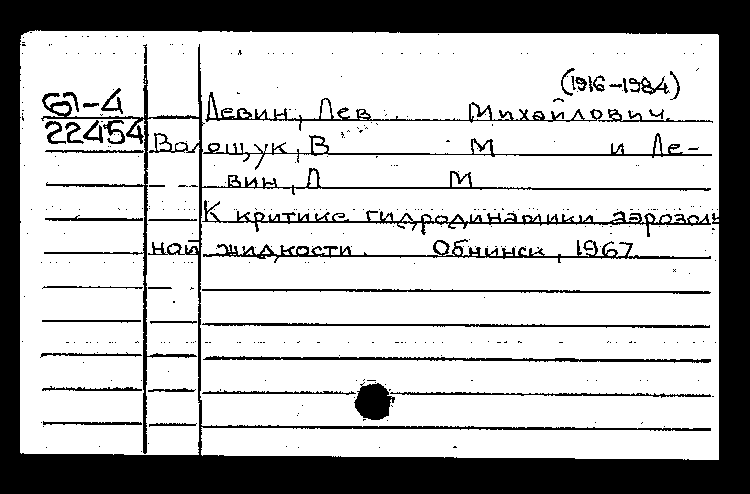 (1916-1984)
61-4 Левин, Лев Михайлович.
22454 Волощук, В М и Ле-
вин, Л М
К критике гидродинамики аэрозоль
ной жидкости. Обнинск, 1967